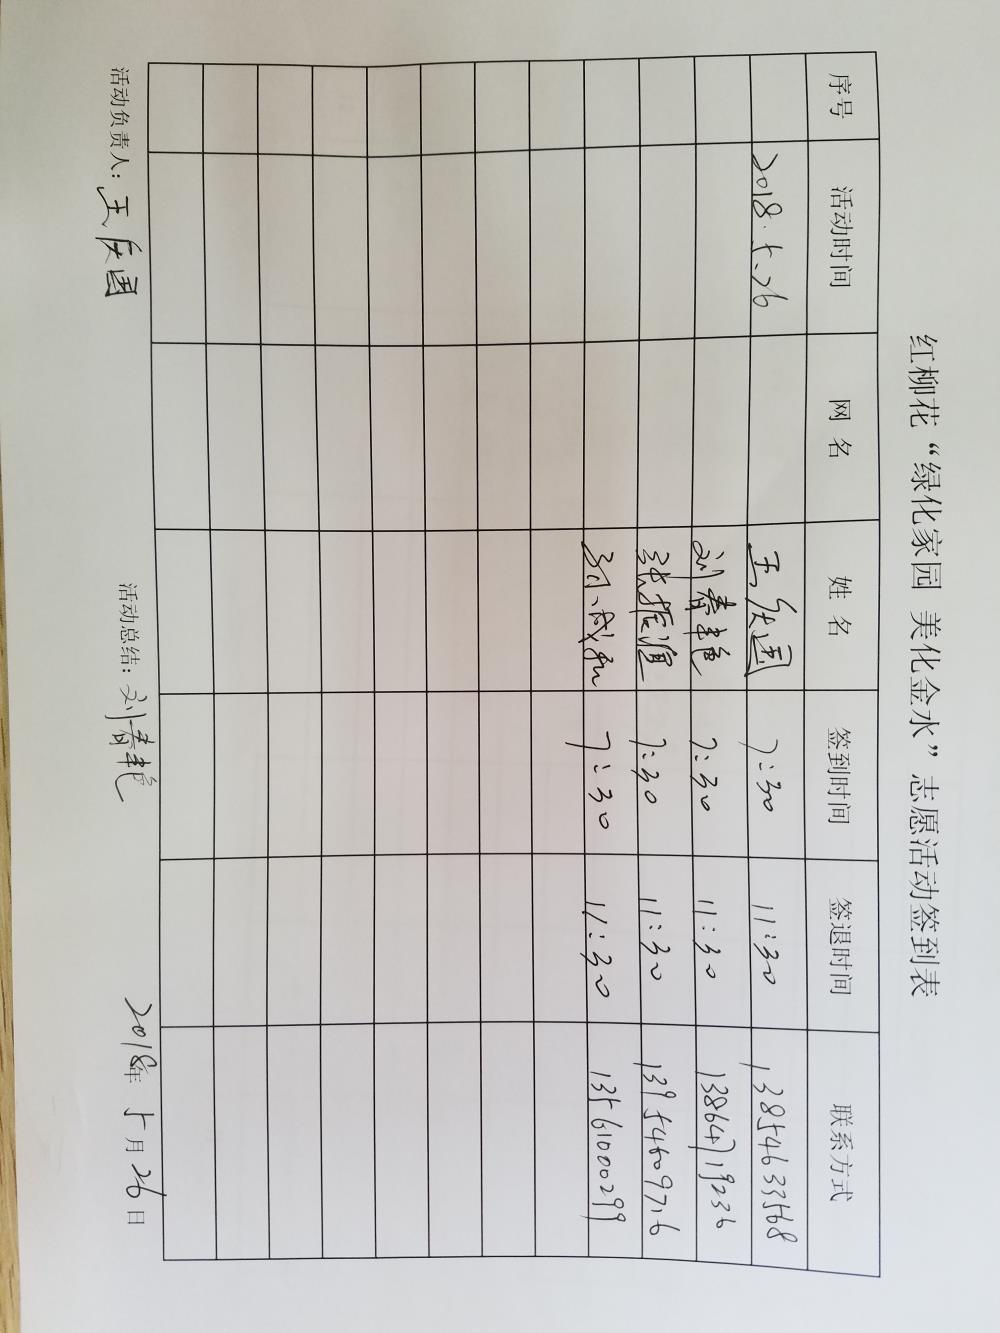 红柳花“绿化家园 美化金水”志愿活动签到表
序号 活动时间 网名 姓名 签到时间 签退时间 联系方式
2018.5.26 7:30 11:30 13854633568
刘春艳 7:30 11:30 13864719236
张振 7:30 11:30 13954609716
7:30 11:30 13561000299
活动负责人：王 国 活动总结：刘春艳 2018年5月26日